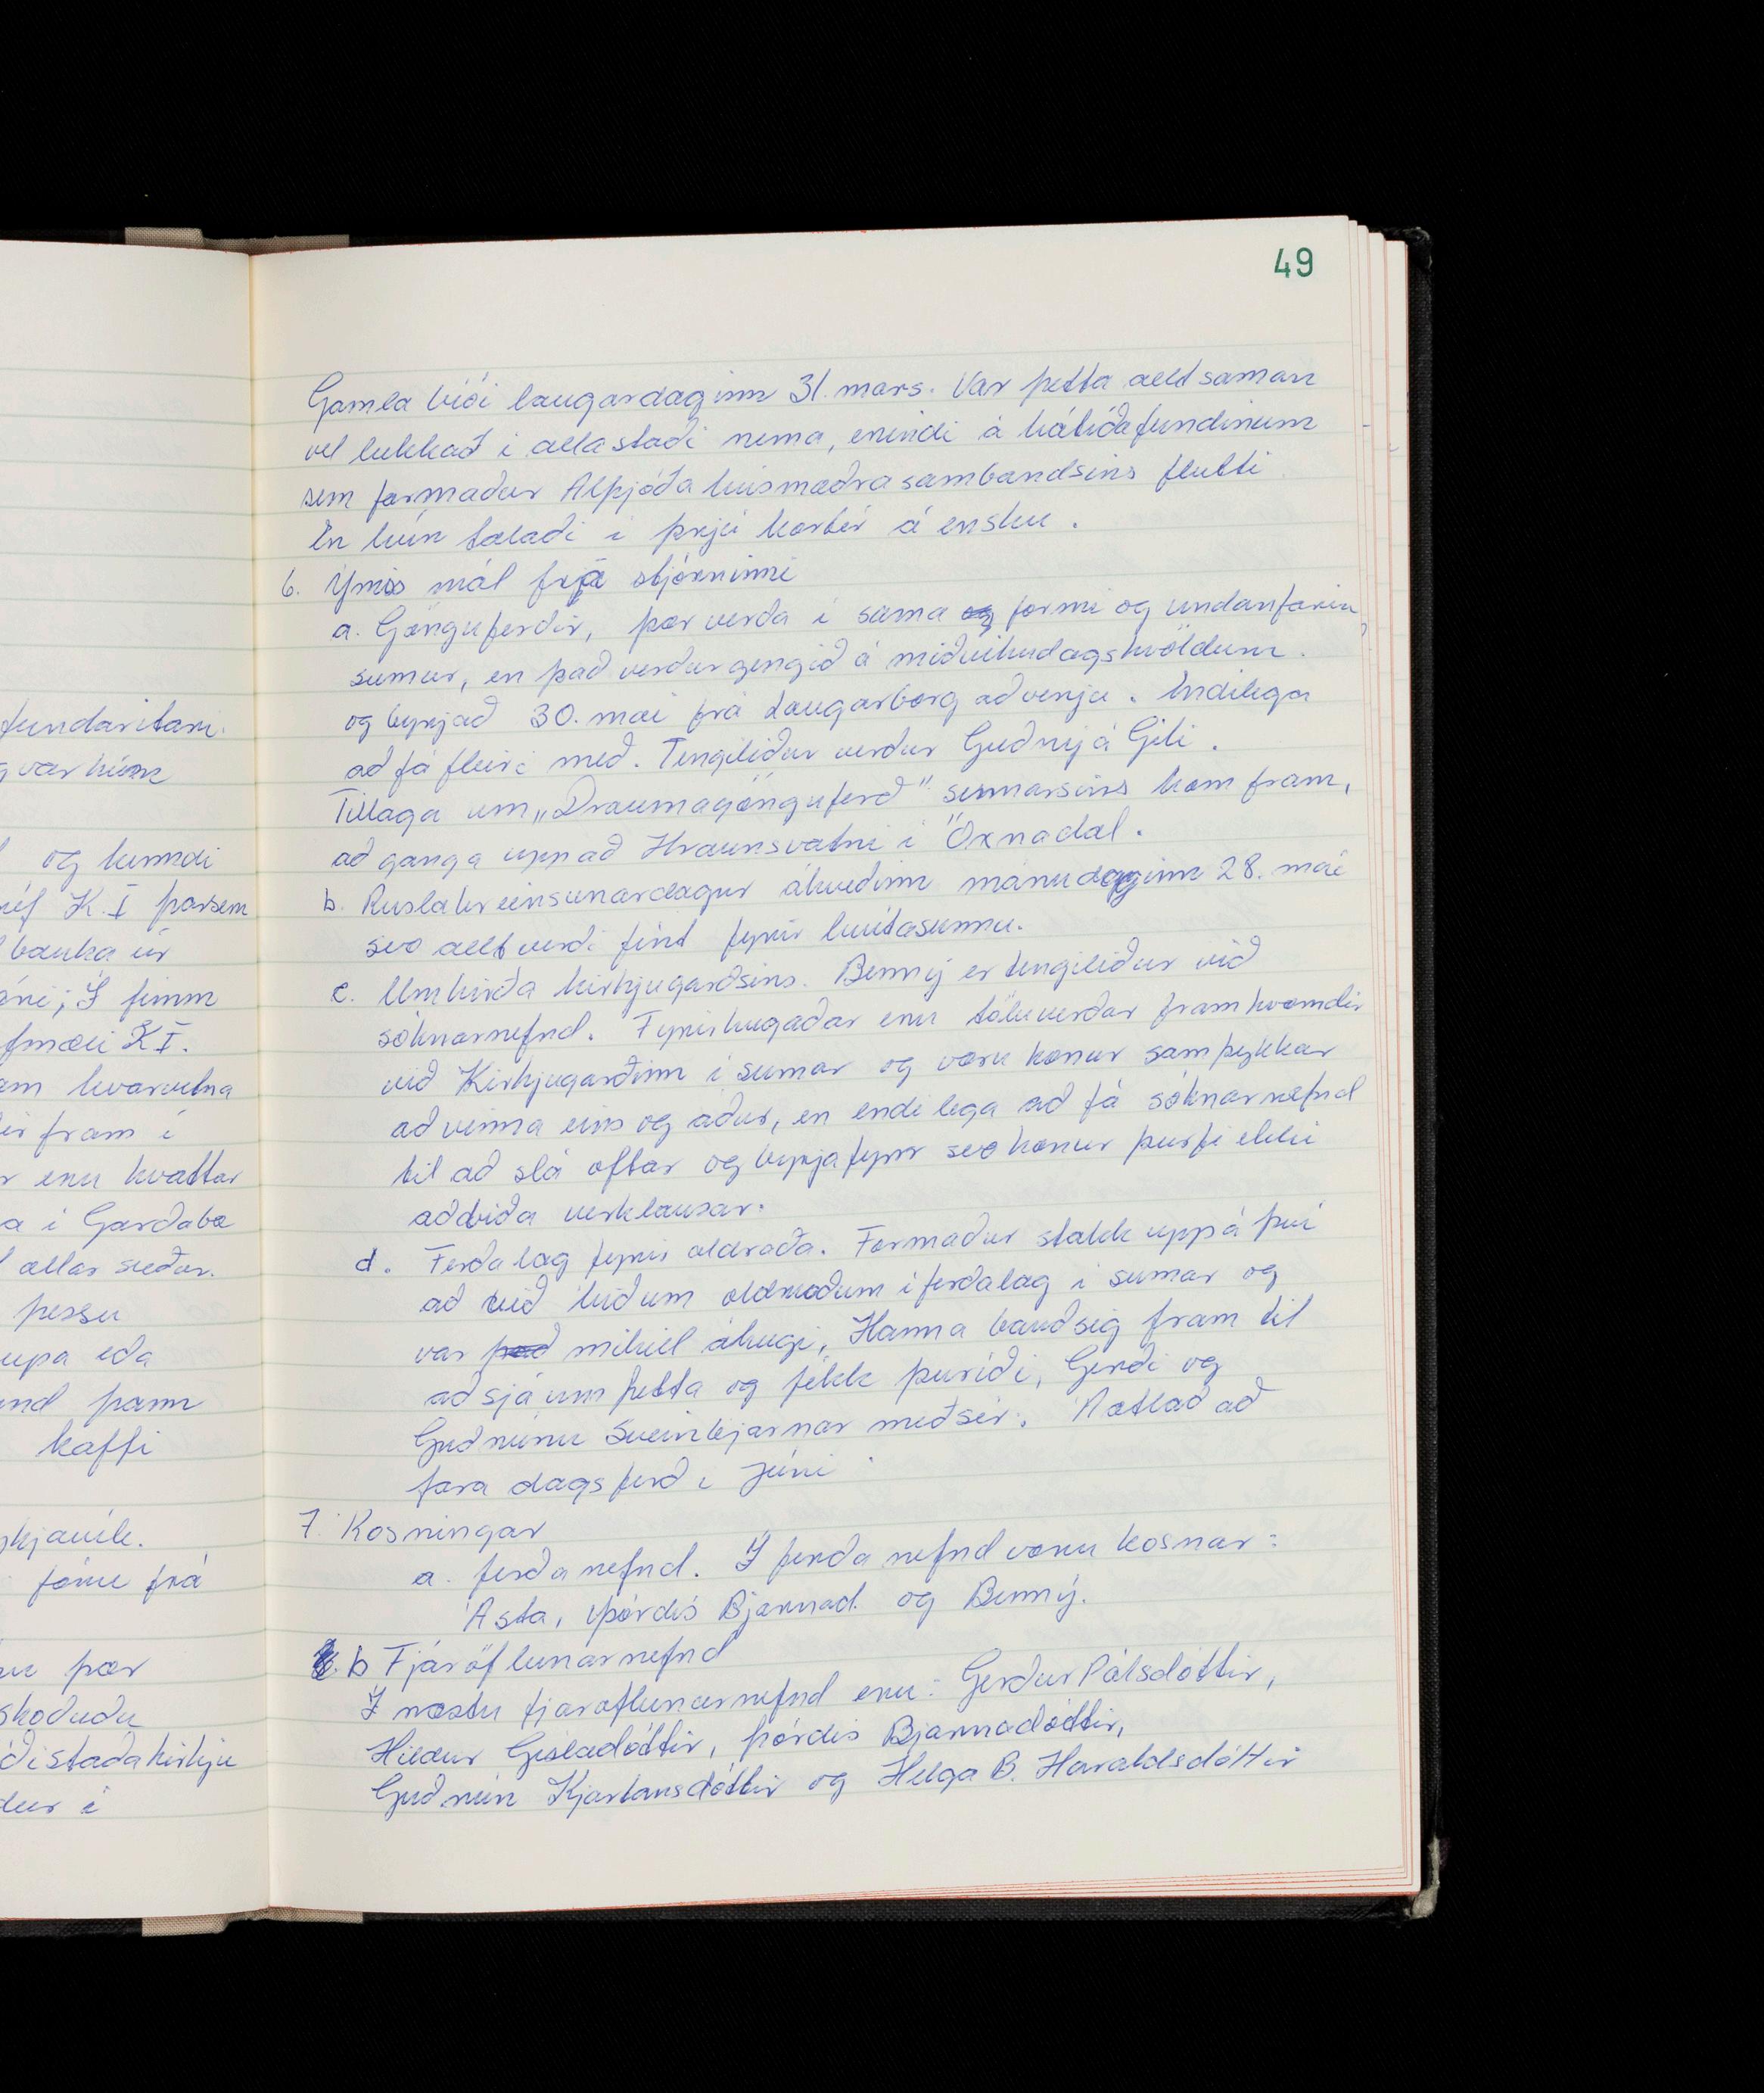 fundaritari.
g var hún
og kunndi
réf K.Í þarsem
banka úr
áni; Í fimm
fmæli K.Í.
am hvarvetna
ir fram í
r eru kvattar
a í Garðabæ
l allar suður.
þessu
upa eða
und þann
kaffi
ykjavík.
fóru frá
þær
skoðuðu
ðistaðakirkju
dur í
49
Gamla bíói laugardaginn 31. mars. Var þetta allt saman
vel lukkað í alla staði nema, erindi á hátíðafundinum
sem formaður Alþjóða húsmæðrasambandsins flutti
En hún talaði í þrjú kortér á ensku.
6. Ýmiss mál frá stjórninni
a. Gönguferðir, þær verða í sama og formi og undanfarin
sumur, en það verður gengið á miðvikudagskvöldum.
og byrjað 30. maí frá Laugarborg að venju. Endilega
að fá fleiri með. Tengiliður verður Guðný á Gili.
Tillaga um „Draumagönguferð" sumarsins kom fram,
að ganga upp að Hraunsvatni í Öxnadal.
b. Ruslahreinsunardagur ákveðinn mánudaginn 28. maí
svo allt verði fínt fyrir hvítasunnu.
c. Umhirða kirkjugarðsins. Benný er tengiliður við
sóknarnefnd. Fyrirhugaðar eru töluverðar framkvæmdir
við Kirkjugarðinn í sumar og voru konur samþykkar
að vinna eins og áður, en endilega að fá sóknarnefnd
til að slá oftar og byrja fyrr svo konur þurfi ekki
að bíða verklausar.
d. Ferðalag fyrir aldraða. Formaður stakk uppá því
að við biðum öldruðum í ferðalag í sumar og
var það mikill áhugi, Hanna bauð sig fram til
að sjá um þetta og fékk Þuríði, Gerði og
Guðrúnu Sveinbjarnar með sér. Áætlað að
fara dagsferð í júní.
7. Kosningar
a. ferðanefnd. Í ferðanefnd voru kosnar:
Ásta, Þórdís Bjarnad. og Benný.
b Fjáröflunarnefnd
Í næstu fjáröflunarnefnd eru: Gerður Pálsdóttir,
Hildur Gísladóttir, Þórdís Bjarnadóttir,
Guðrún Kjartansdóttir og Helga B. Haraldsdóttir